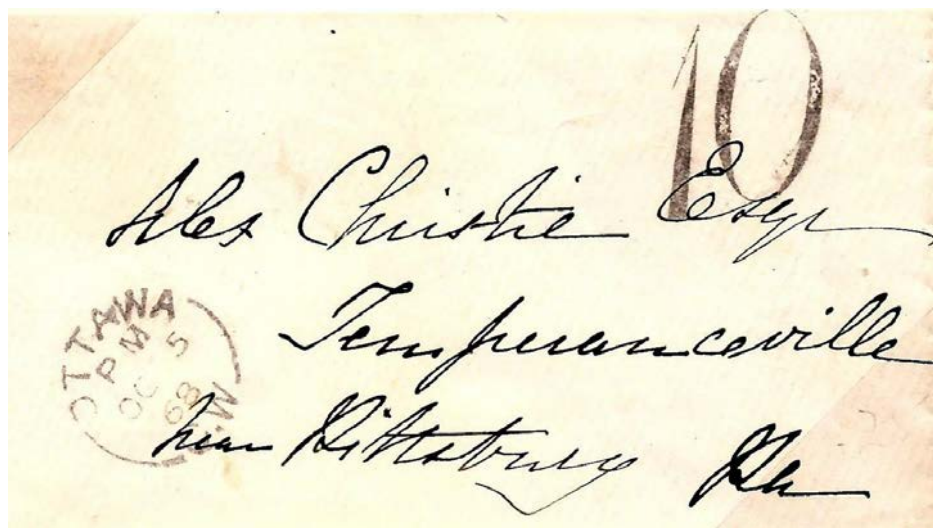 10
Alex Christie Esqr
Temperanceville
near Pittsburg Pa
OTTAWA
PM
OC 5
68
C.W